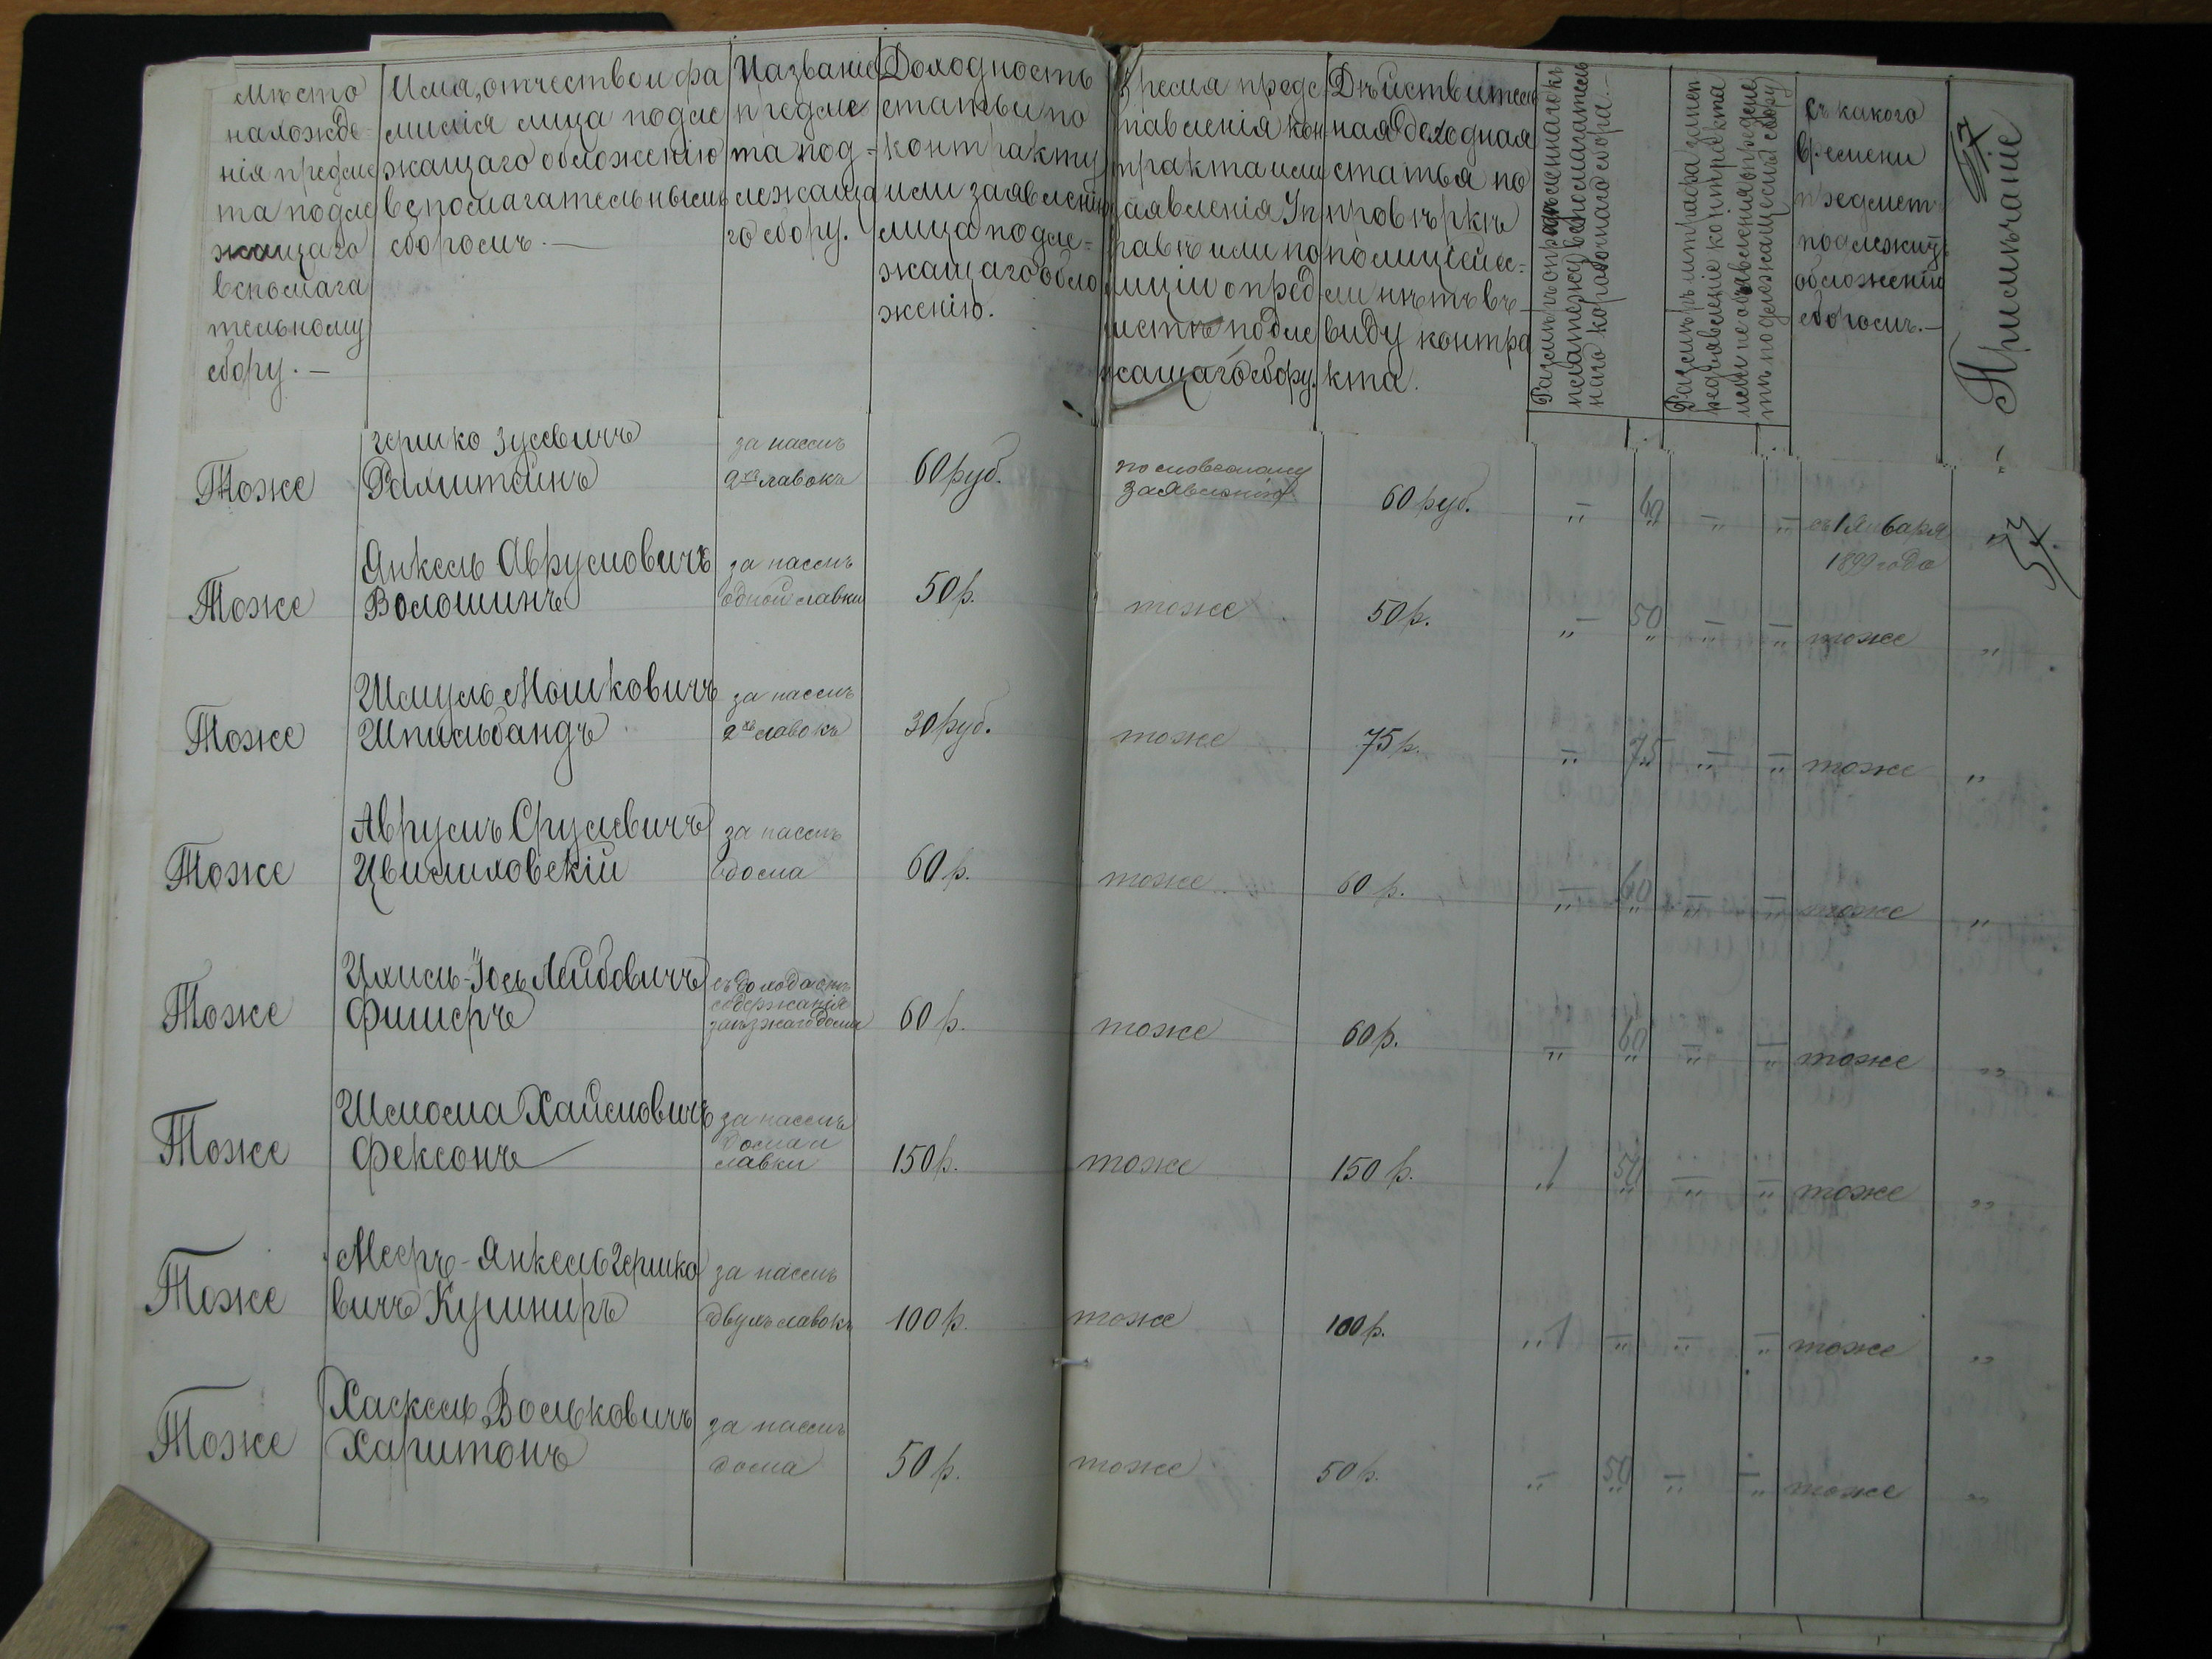 Мѣсто
нахожде-
нія предме
та подле
жащаго
вспомага
тельному
сбору. —
Имя, отчество и фа
милія лица подле
жащаго обложенію
вспомагательнымъ
сборомъ. —
Названіе
предме
та под-
лежаща
го сбору.
Доходность
статьи по
контракту
или заявленію
лица подле-
жащаго обло
женію.
Время предс
тавленія кон
тракта или
заявленія Уп
равѣ или по
лиціи о пред
метѣ подле
жащаго сбору.
Дѣйствитель
ная доходная
статья по
провѣркѣ
полиціей е-
сли нѣтъ въ
виду контра
кта.
Размѣръ опредѣленнаго къ
платежу вспомагатель
наго коробочнаго сбора. —
Размѣръ штрафа за неп
редъявленіе контракта
или не объявленія о предме
тѣ подлежащемъ сбору
съ какого
времени
предметъ
подлежитъ
обложенію
сборомъ. —
Примѣчаніе
57
Тоже
Гершко Зусевичъ
Рахштейнъ
за наемъ
2хъ лавокъ
60 руб.
по словесному
заявленію
60 руб.
„
60
„
„
съ 1 Января
1899 года
„
57.
Тоже
Янкель Аврумовичъ
Волошинъ
за наемъ
одной лавки
50 р.
тоже
50 р.
„
50
„
„
тоже
„
Тоже
Шмуль Мошковичъ
Шпильбандъ
за наемъ
2хъ лавокъ
30 руб.
тоже
75 р.
„
75
„
„
тоже
„
Тоже
Аврумъ Срулевичъ
Цвилиховскій
за наемъ
дома
60 р.
тоже
60 р.
„
60
„
„
тоже
„
Тоже
Ихиль-Іось Лейбовичъ
Фишеръ
съ дохода отъ
содержанія
заѣзжаго дома
60 р.
тоже
60 р.
„
60
„
„
тоже
„
Тоже
Шлома Хаимовичъ
Фексонъ
за наемъ
дома и
лавки
150 р.
тоже
150 р.
„ 1
50
„
„
тоже
„
Тоже
Мееръ-Янкель Гершко
вичъ Кушниръ
за наемъ
двухъ лавокъ
100 р.
тоже
100 р.
„ 1
„
„
„
тоже
„
Тоже
Хаскель Вольковичъ
Харитонъ
за наемъ
дома
50 р.
тоже
50 р.
„
50
„
„
тоже
„